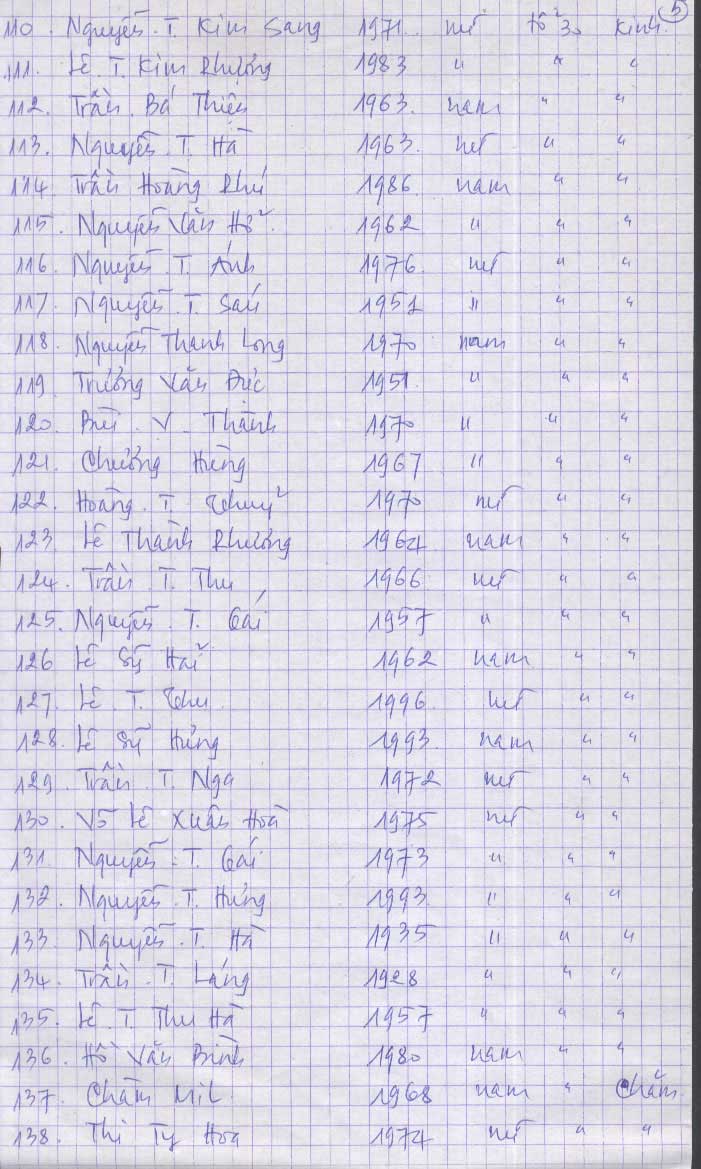 5
110. Nguyễn. T. Kim Sang 1971. nữ tổ 30 Kinh.
111. Lê. T. Kim Phượng 1983 " " "
112. Trần. Bá Thiện 1963. nam " "
113. Nguyễn. T. Hà 1963. nữ " "
114 Trần Hoàng Phú 1986. nam " "
115. Nguyễn Văn Hổ. 1962 " " "
116. Nguyễn. T. Ánh 1976. nữ " "
117. Nguyễn. T. Sáu 1951 " " "
118. Nguyễn Thanh Long 1970 nam " "
119. Trương Văn Đức 1951. " " "
120. Bùi. V. Thành 1970 " " "
121. Chương Hùng 1967 " " "
122. Hoàng. T. Thuỷ 1970 nữ " "
123. Lê Thanh Phương 1964 nam " "
124. Trần. T. Thu 1966 nữ " "
125. Nguyễn. T. Gái 1957 " " "
126 Lê Sỹ Hải 1962 nam " "
127. Lê. T. Thu 1996. nữ " "
128. Lê Sỹ Hưng 1993. nam " "
129. Trần T. Nga 1972 nữ " "
130. Võ Lê Xuân Hoà 1975 nữ " "
131. Nguyễn. T. Gái 1973 " " "
132. Nguyễn. T. Hưng 1993. " " "
133 Nguyễn. T. Hà 1935 " " "
134. Trần. T. Láng 1928 " " "
135. Lê. T. Thu Hà 1957 " " "
136. Hồ Văn Bình 1980 nam " "
137. Chăm Mil. 1968 nam " Chăm
138. Thi Ty Hoa 1974 nữ " "